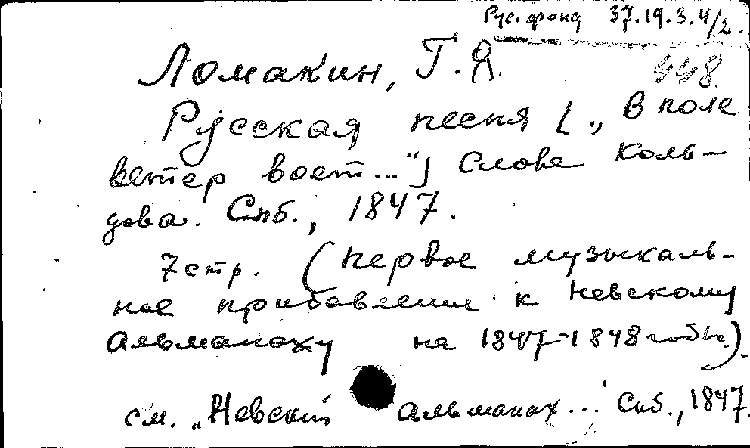 Рус. фонд 37.19.3.4/2.
Ломакин, Г. Я. 448.
Русская песня [„ В поле
ветер воет..."] Слова Коль-
дова. Спб., 1847.
7 стр. (Первое музыкаль-
ное прибавление к Невскому
Альманаху на 1847-1848 годы.).
см. „Невский альманах...' Спб., 1847.